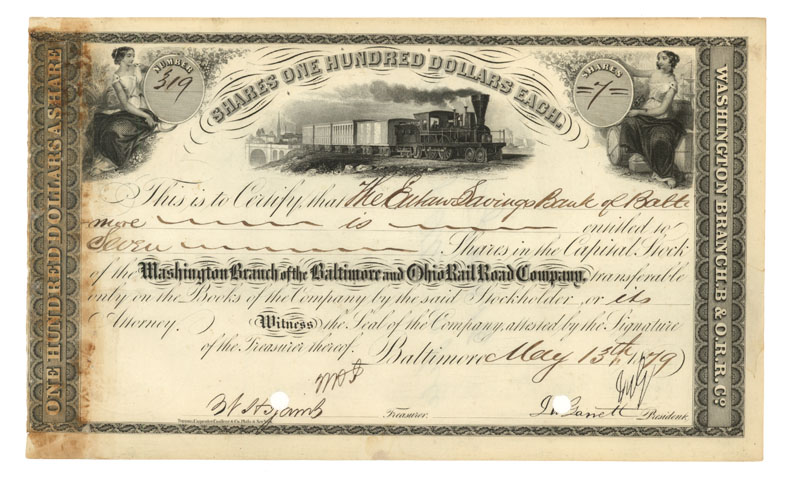 NUMBER
319
SHARES ONE HUNDRED DOLLARS EACH.
SHARES
=7=
ONE HUNDRED DOLLARS A SHARE
WASHINGTON BRANCH. B & O. R. R. Co.
This is to Certify, that The Eutaw Savings Bank of Balti
more is entitled to
Seven Shares in the Capital Stock
of the Washington Branch of the Baltimore and Ohio Rail Road Company, transferable
only on the Books of the Company by the said Stockholder or its
Attorney. Witness the Seal of the Company, attested by the Signature
of the Treasurer thereof. Baltimore May 13th 1879
Treasurer. J W Garrett President.